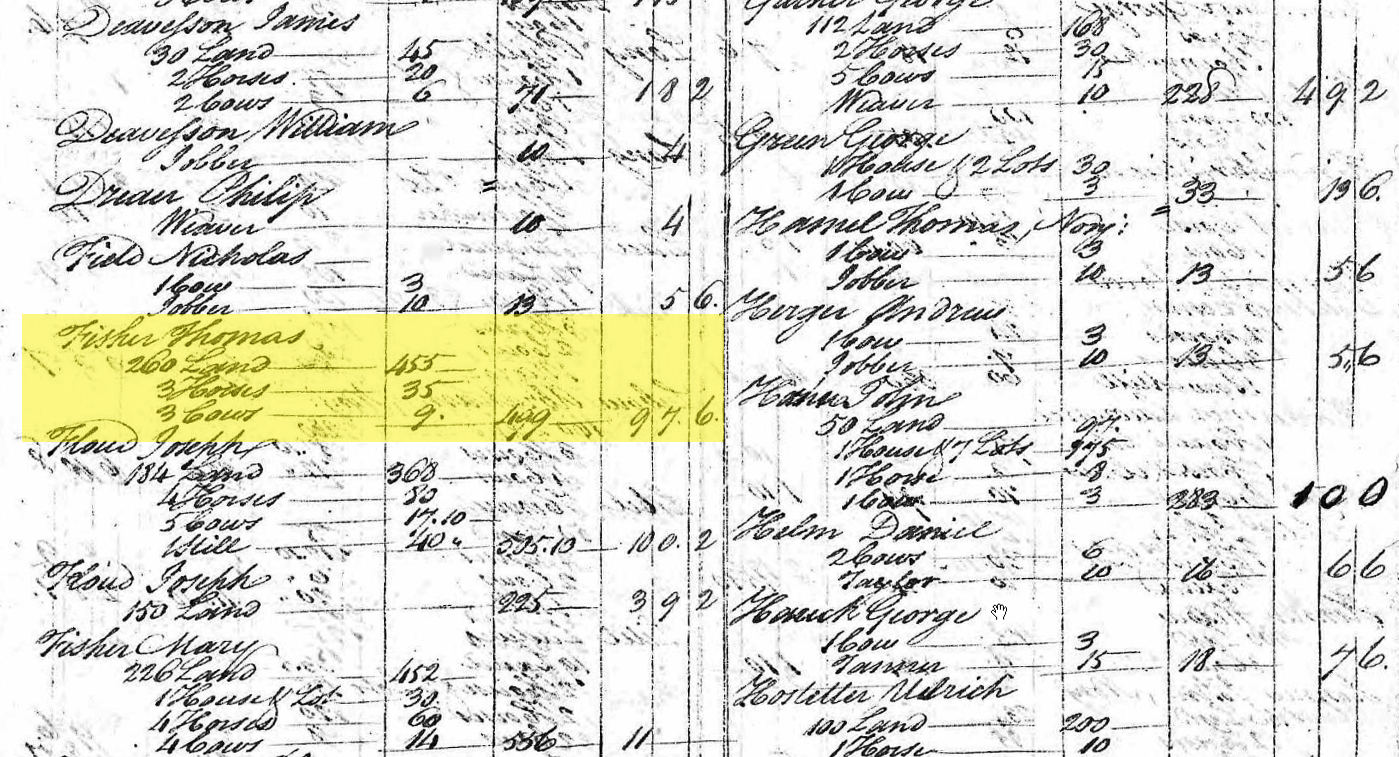 Deavesson James
30 Land 45
2 Horses 20
2 Cows 6 71 1 8 2
Deavesson William
Jobber 10 4
Philip
Weaver 10 4
Field Nicholas
1 Cow 3
Jobber 10 13 5 6.
Fisher Thomas
260 Land 455
3 Horses 35
3 Cows 9. 499 9 7 6.
Floud Joseph
184 Land 368
4 Horses 80
5 Cows 17.10
1 Still 40 10 0. 2
Floud Joseph
150 Land 225 3 9 2
Fisher Mary
226 Land 452
1 House & Lot 30
4 Horses 60
4 Cows 14 556 11
George
112 Land 168
2 Horses 30
5 Cows 15
Weaver 10 228 4 9 2
Green George
1 House & 2 Lots 30
1 Cow 3 33 13 6.
Hamel Thomas,
1 Cow 3
Jobber 10 13 5 6
Herger Andrew
1 Cow 3
Jobber 10 13 5,, 6
John
50 Land 97
1 House & 7 Lots
1 Horse 8
1 Cow 3 283 10 0
Helm Daniel
2 Cows 6
Taylor 10 16 6 6
Hauck George
1 Cow 3
Tanner 15 18 7 6.
Hostetter Ulrich
100 Land 200
1 Horse 10